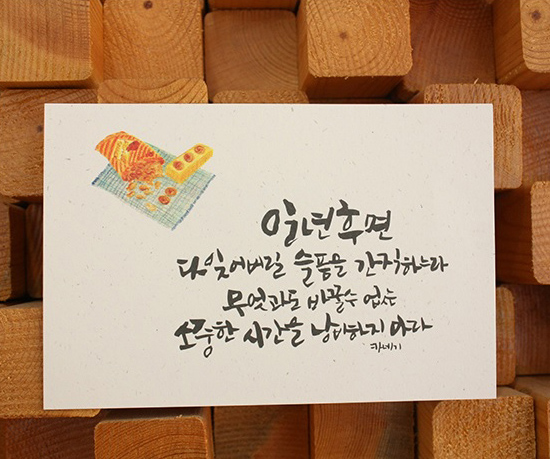 일년후면
다잊어버릴 슬픔을 간직하느라
무엇과도 바꿀수 없는
소중한 시간을 낭비하지 마라
카네기